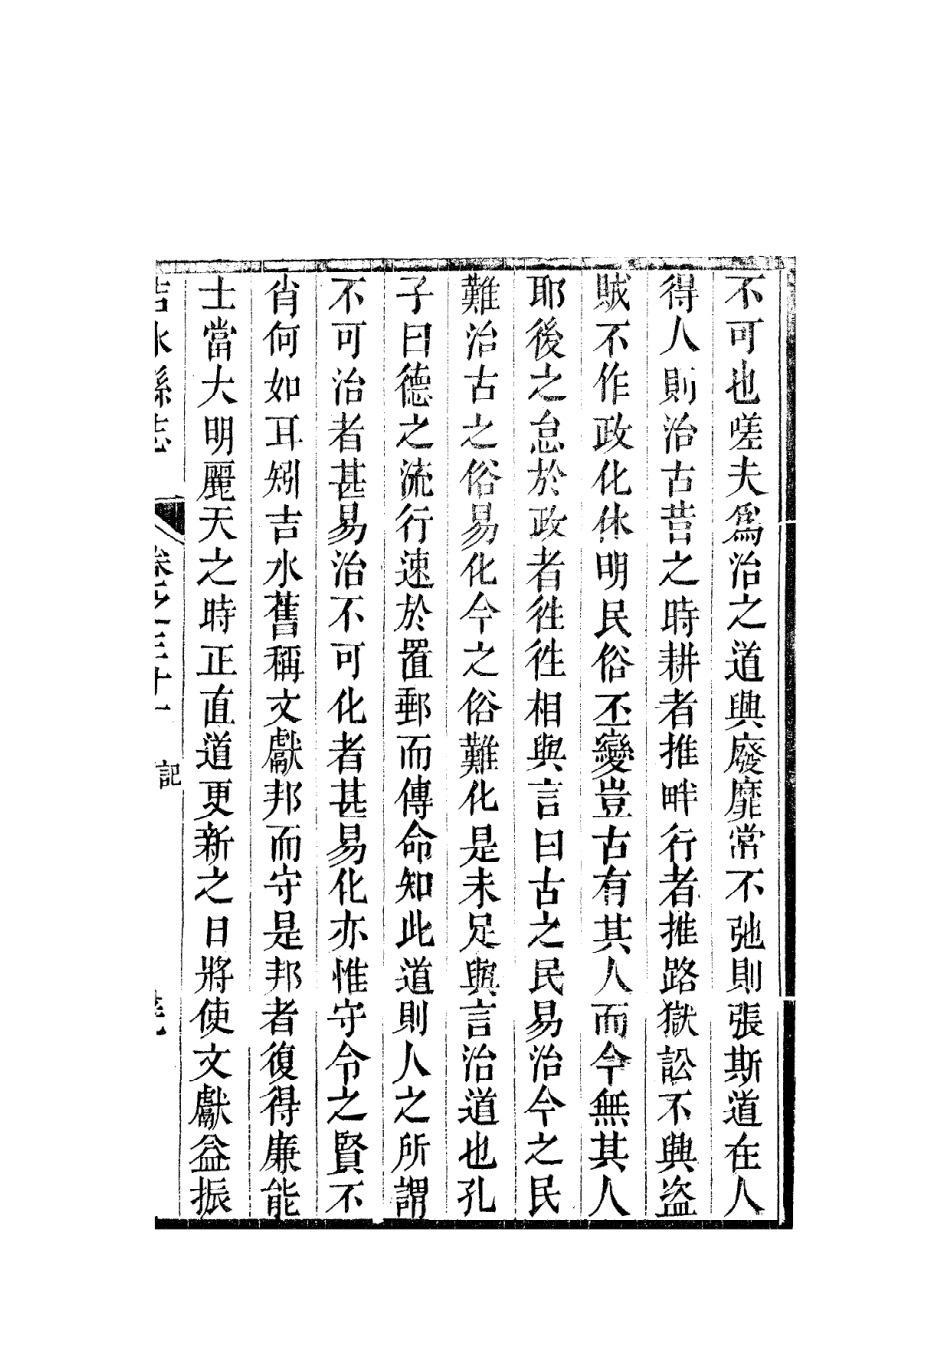 不可也嗟夫爲治之道興廢靡常不弛則張斯道在人
得人則治古昔之時耕者推畔行者推路獄訟不興盜
賊不作政化休明民俗丕變豈古有其人而今無其人
耶後之怠於政者徃徃相與言曰古之民易治今之民
難治古之俗易化今之俗難化是未足與言治道也孔
子曰德之流行速於置郵而傳命知此道則人之所謂
不可治者甚易治不可化者甚易化亦惟守令之賢不
肖何如耳矧吉水舊稱文獻邦而守是邦者復得廉能
士當大明麗天之時正直道更新之日將使文獻益振
吉水縣志 卷之三十一 記